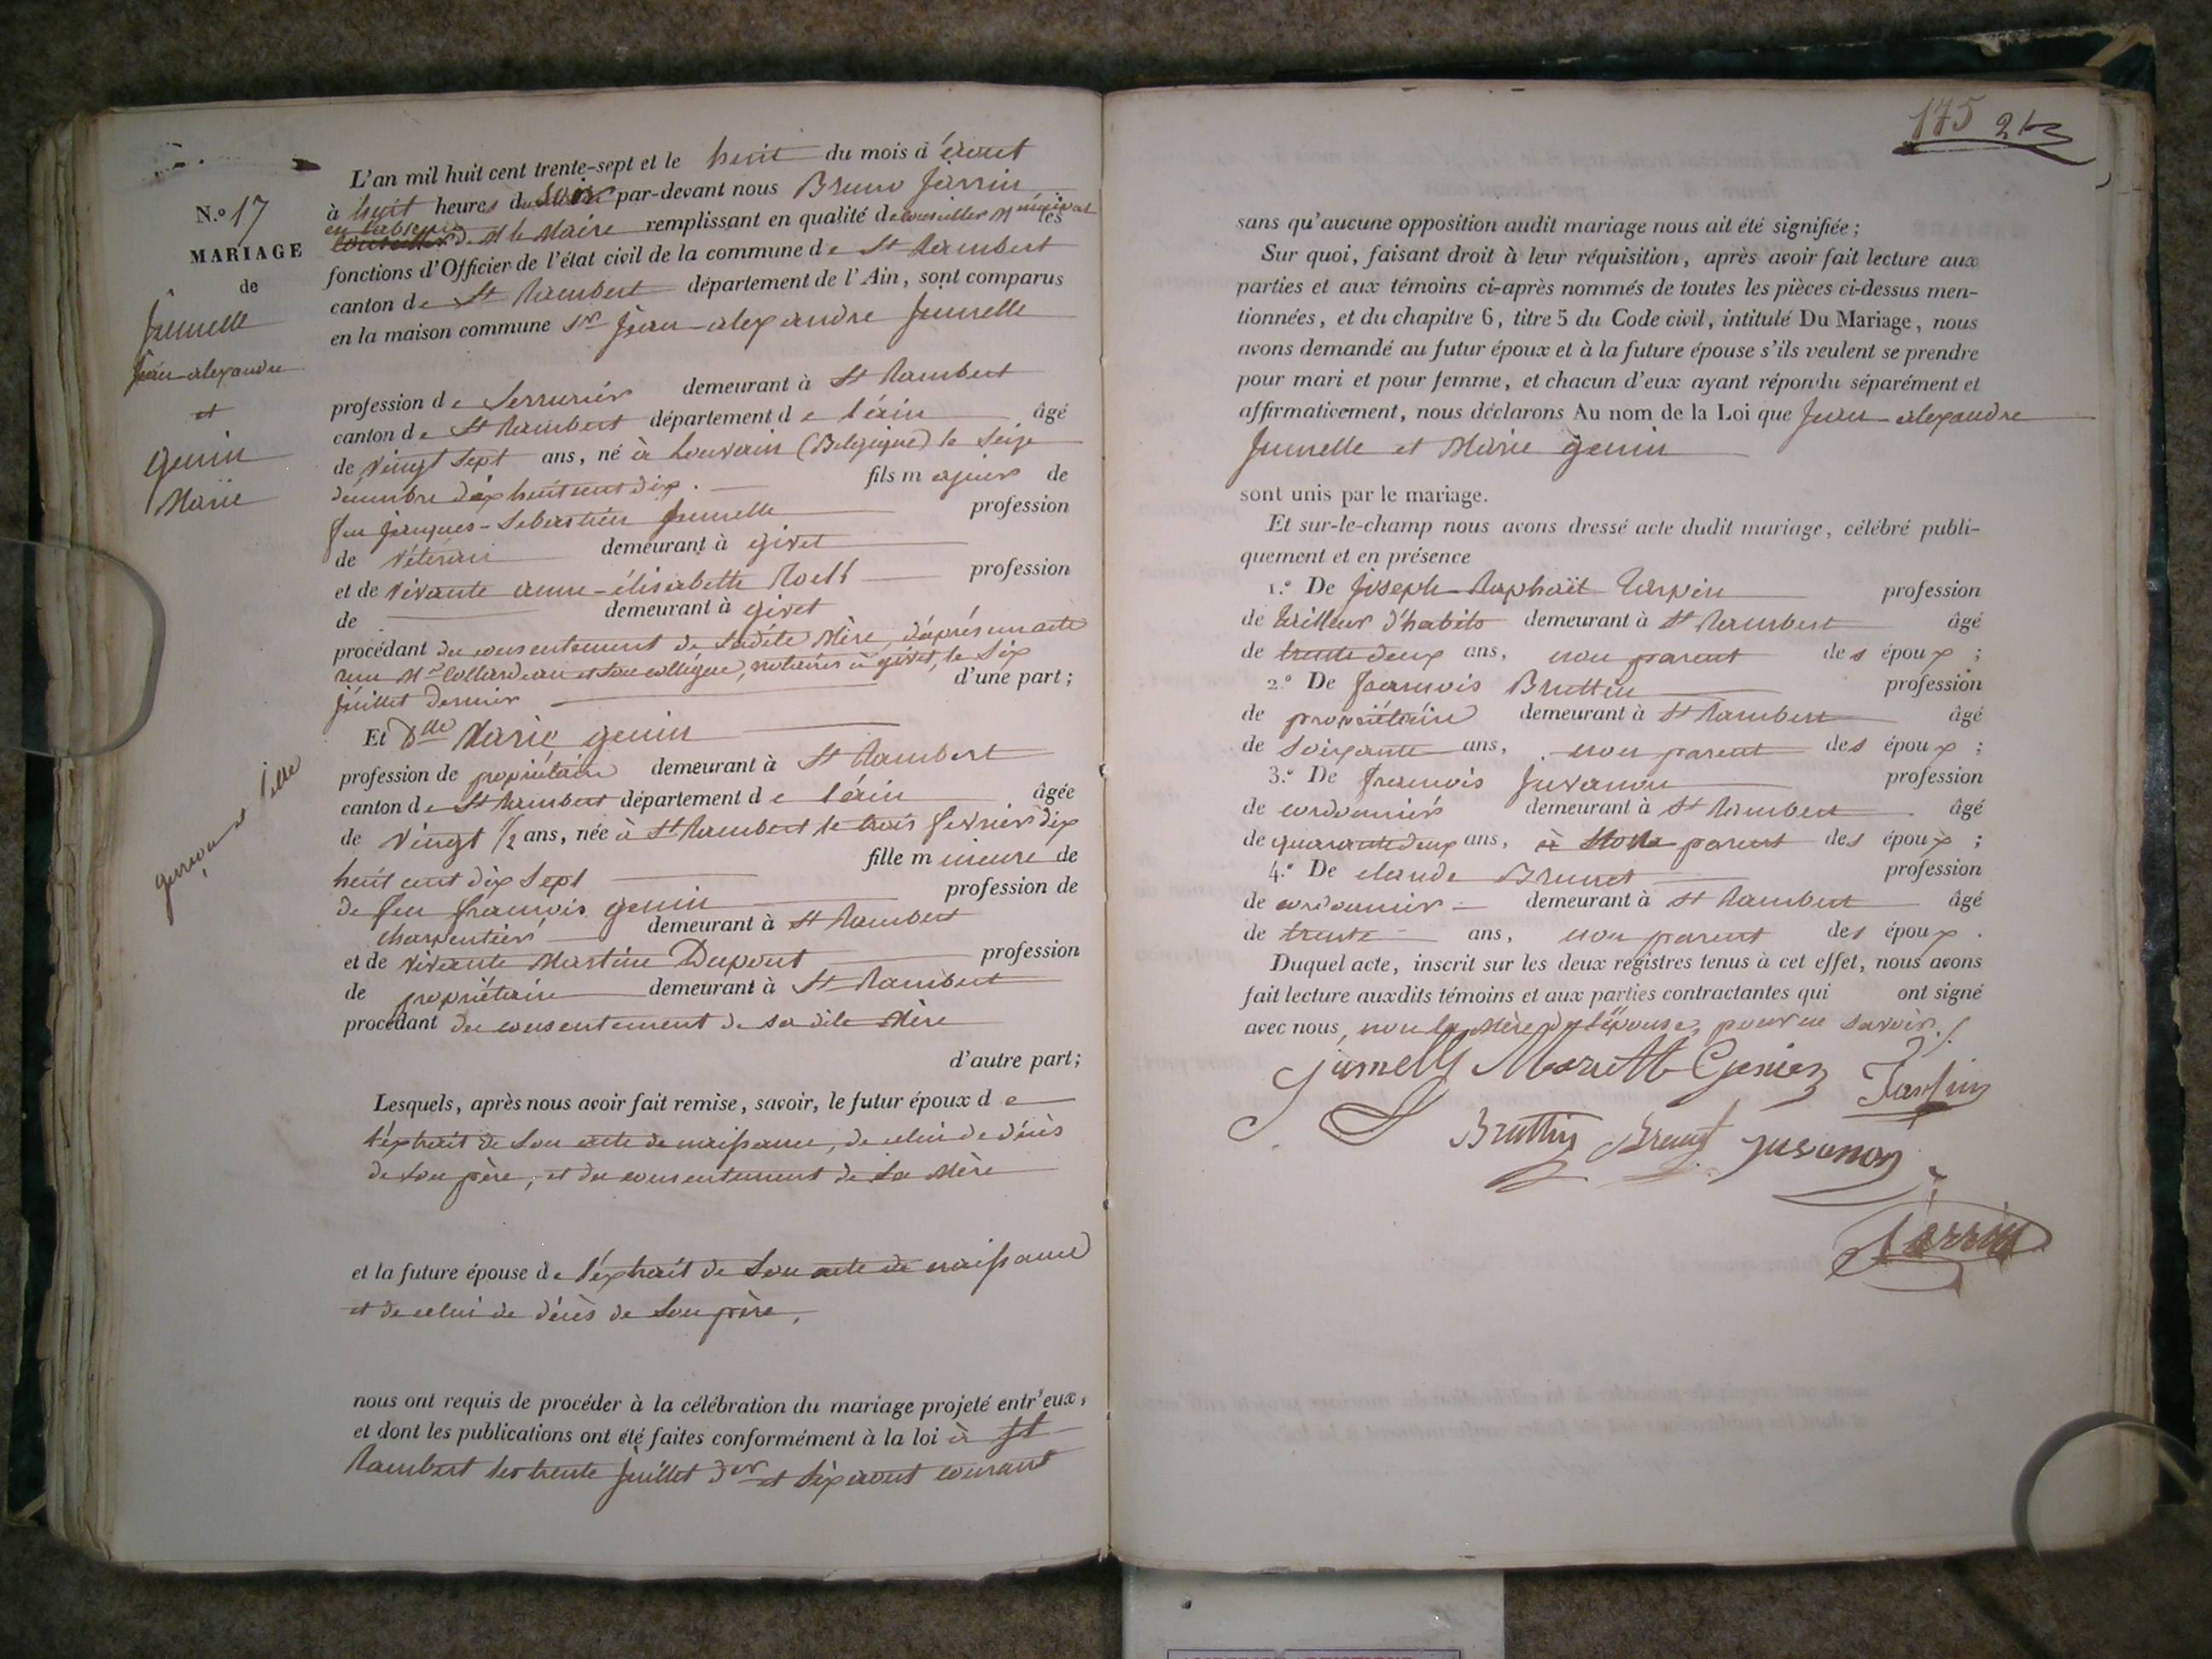 N.º 17
MARIAGE
de
Jumelle
Jean-alexandre
et
genin
Marie
garçon et fille
L'an mil huit cent trente-sept et le huit du mois d'août
à huit heures du soir par-devant nous Bruno Jarrin
en l'absence de M le Maire remplissant en qualité de conseiller Municipal les
fonctions d'Officier de l'état civil de la commune de St Rambert
canton de St Rambert département de l'Ain, sont comparus
en la maison commune Sr Jean-alexandre Jumelle
profession de Serrurier demeurant à St Rambert
canton de St Rambert département de l'ain âgé
de vingt sept ans, né à Louvain (Belgique) le Seize
décembre dix huit cent dix. fils majeur de
feu Jacques-Sebastien Jumelle profession
de Vétéran demeurant à givet
et de vivante anne-élisabette profession
de demeurant à givet
procédant du consentement de Sadite Mère, d'après un acte
reçu Me Collardeau et son collègue, notaires à givet, le Six
juillet dernier d'une part;
Et Dlle Marie genin
profession de propriétaire demeurant à St Rambert
canton de St Rambert département de l'ain âgée
de vingt 1/2 ans, née à St Rambert le trois fevrier dix
huit cent dix Sept fille mineure de
de feu françois genin profession de
charpentier demeurant à St Rambert
et de vivante Martine Dupont profession
de propriétaire demeurant à St Rambert
procédant du consentement de sa dite Mère
d'autre part;
Lesquels, après nous avoir fait remise, savoir, le futur époux de
l'éxtrait de Son acte de naissance, de celui de décès
de Son père, et du consentement de Sa Mère
et la future épouse de l'éxtrait de Son acte de naissance
et de celui de décès de Son père,
nous ont requis de procéder à la célébration du mariage projeté entr'eux,
et dont les publications ont été faites conformément à la loi à St
Rambert les trente juillet der et Six août courant
175
sans qu'aucune opposition audit mariage nous ait été signifiée;
Sur quoi, faisant droit à leur réquisition, après avoir fait lecture aux
parties et aux témoins ci-après nommés de toutes les pièces ci-dessus men-
tionnées, et du chapitre 6, titre 5 du Code civil, intitulé Du Mariage, nous
avons demandé au futur époux et à la future épouse s'ils veulent se prendre
pour mari et pour femme, et chacun d'eux ayant répondu séparément et
affirmativement, nous déclarons Au nom de la Loi que Jean-alexandre
Jumelle et Marie genin
sont unis par le mariage.
Et sur-le-champ nous avons dressé acte dudit mariage, célébré publi-
quement et en présence
1.º De Joseph-Raphaël Tarpin profession
de tailleur d'habits demeurant à St Rambert âgé
de trente deux ans, non parent des époux;
2.º De francois Bruttin profession
de propriétaire demeurant à St Rambert âgé
de Soixante ans, non parent des époux;
3.º De francois Juvanon profession
de cordonnier demeurant à St Rambert âgé
de quarante deux ans, parent des époux;
4.º De claude Brunet profession
de cordonnier demeurant à St Rambert âgé
de trente ans, non parent des époux.
Duquel acte, inscrit sur les deux registres tenus à cet effet, nous avons
fait lecture auxdits témoins et aux parties contractantes qui ont signé
avec nous, non la Mère de l'épouse, pour ne savoir./.
Jumelle Mariette Genin Tarpin
Bruttin Brunet Juvanon
Jarrin